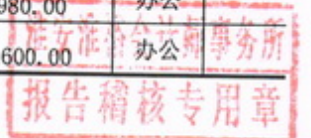 980.00 办公
淮安淮信会计师事务所
600.00 办公
报告稽核专用章